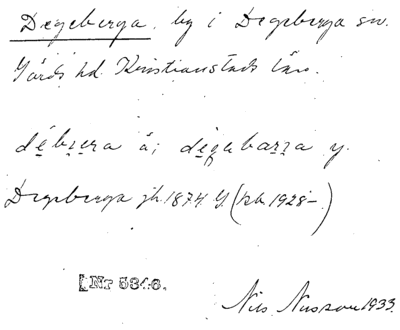 Degeberga, by i Degeberga sn.
Gärds hd. Kristianstads län.
débzera ä; degebarza y.
Degeberga jh. 1874 y. (kh 1928–)
[Nr 5346.
Nils Nilsson 1933.